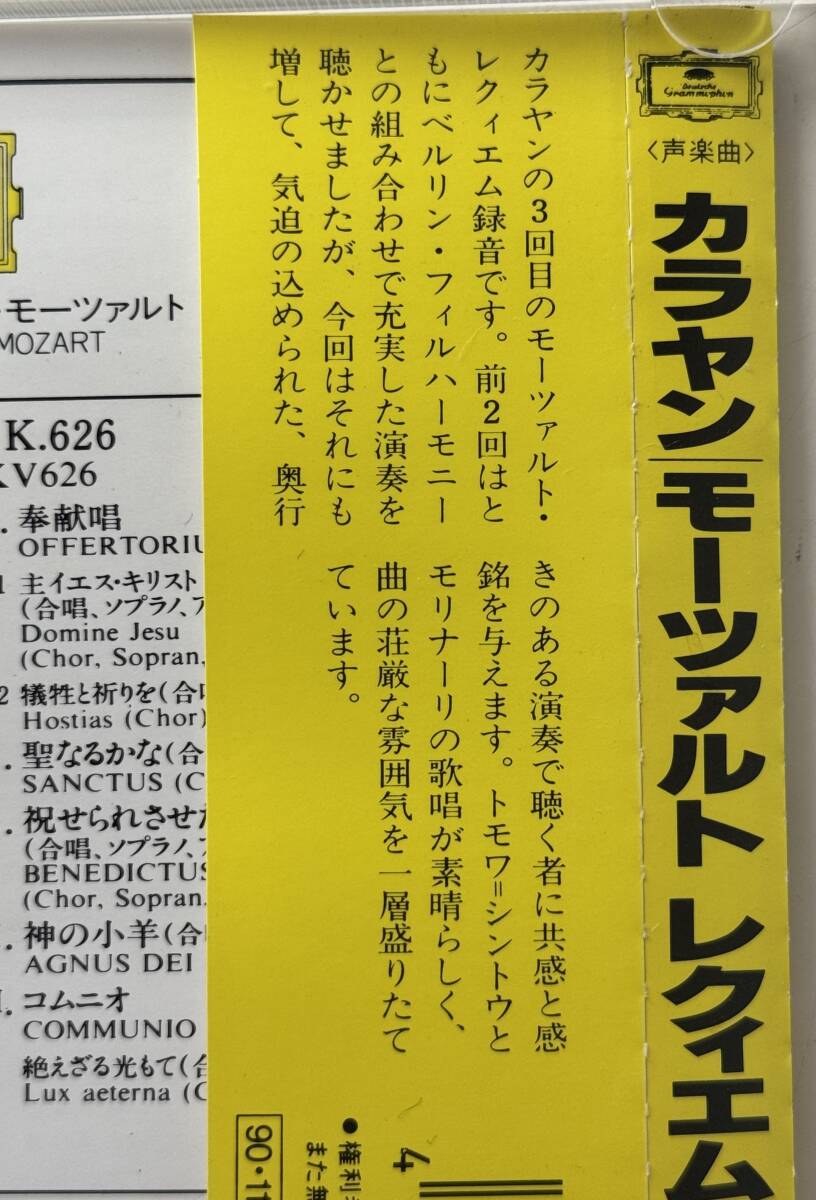 Deutsche
Grammophon
〈声楽曲〉
カラヤン|モーツァルト レクィエム
カラヤンの3回目のモーツァルト・
レクィエム録音です。前2回はと
もにベルリン・フィルハーモニー
との組み合わせで充実した演奏を
聴かせましたが、今回はそれにも
増して、気迫の込められた、奥行
きのある演奏で聴く者に共感と感
銘を与えます。トモワ=シントウと
モリナーリの歌唱が素晴らしく、
曲の荘厳な雰囲気を一層盛りたて
ています。
・モーツァルト
MOZART
K.626
KV626
奉献唱
OFFERTORIU
1 主イエス・キリスト
(合唱、ソプラノ、ア
Domine Jesu
(Chor, Sopran,
2 犠牲と祈りを(合唱
Hostias (Chor)
聖なるかな(合
SANCTUS (C
祝せられさせた
(合唱、ソプラノ、ア
BENEDICTUS
(Chor, Sopran,
神の小羊(合
AGNUS DEI
コムニオ
COMMUNIO
絶えざる光もて(合
Lux aeterna (C
4
●権利
また無
90・11